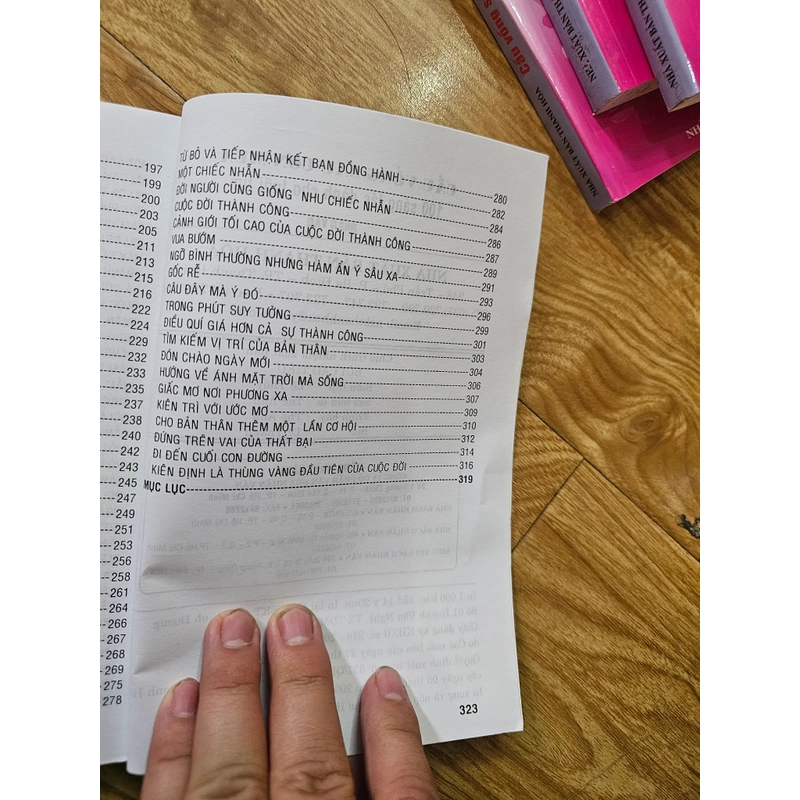 197
199
200
203
205
211
213
215
216
222
224
229
232
233
235
237
238
240
242
243
245
247
249
251
253
256
258
261
264
266
267
268
269
275
278
TỪ BỎ VÀ TIẾP NHẬN KẾT BẠN ĐỒNG HÀNH 280
MỘT CHIẾC NHẪN 282
ĐỜI NGƯỜI CŨNG GIỐNG NHƯ CHIẾC NHẪN 284
CUỘC ĐỜI THÀNH CÔNG 286
CẢNH GIỚI TỐI CAO CỦA CUỘC ĐỜI THÀNH CÔNG 287
VUA BƯỚM 289
NGÕ BÌNH THƯỜNG NHƯNG HÀM ẨN Ý SÂU XA 291
GỐC RỄ 293
CÂU ĐÂY MÀ Ý ĐÓ 296
TRONG PHÚT SUY TƯỞNG 299
ĐIỀU QUÍ GIÁ HƠN CẢ SỰ THÀNH CÔNG 301
TÌM KIẾM VỊ TRÍ CỦA BẢN THÂN 303
ĐÓN CHÀO NGÀY MỚI 304
HƯỚNG VỀ ÁNH MẶT TRỜI MÀ SỐNG 306
GIẤC MƠ NƠI PHƯƠNG XA 307
KIÊN TRÌ VỚI ƯỚC MƠ 309
CHO BẢN THÂN THÊM MỘT LẦN CƠ HỘI 310
ĐỨNG TRÊN VAI CỦA THẤT BẠI 312
ĐI ĐẾN CUỐI CON ĐƯỜNG 314
KIÊN ĐỊNH LÀ THÙNG VÀNG ĐẦU TIÊN CỦA CUỘC ĐỜI 316
MỤC LỤC 319
323
Cầu vồng
NHÀ XUẤT BẢN THANH HÓA
NHÀ XUẤT BẢN TH
NHÀ XUẤT BẢN TH